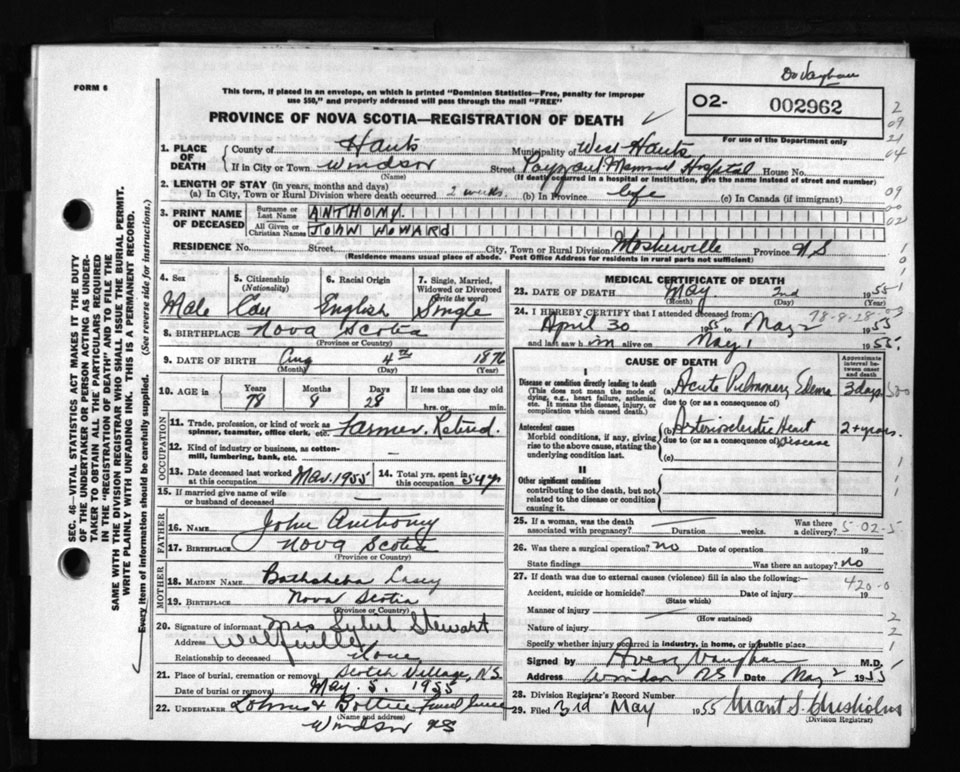 FORM 6
This form, if placed in an envelope, on which is printed "Dominion Statistics—Free, penalty for improper
use $50," and properly addressed will pass through the mail "FREE"
PROVINCE OF NOVA SCOTIA—REGISTRATION OF DEATH
02- 002962
For use of Department only
1. PLACE OF DEATH
County of Hants Municipality of West Hants
If in City or Town Windsor Street Payzant Memorial Hospital House No.
(Name) (If death occurred in a hospital or institution, give the name instead of street and number)
2. LENGTH OF STAY (in years, months and days)
(a) In City, Town or Rural Division where death occurred 2 weeks (b) In Province life (c) In Canada (if immigrant)
3. PRINT NAME OF DECEASED
Surname or Last Name ANTHONY.
All Given or Christian Names JOHN HOWARD
RESIDENCE No. Street City, Town or Rural Division Mosherville Province N S
(Residence means usual place of abode. Post Office Address for residents in rural parts not sufficient)
4. Sex Male
5. Citizenship (Nationality) Can
6. Racial Origin English
7. Single, Married, Widowed or Divorced (Write the word) Single
8. BIRTHPLACE Nova Scotia
(Province or Country)
9. DATE OF BIRTH Aug 4th 1876
(Month) (Day) (Year)
10. AGE in Years 78 Months 8 Days 28 If less than one day old hrs. or min.
OCCUPATION
11. Trade, profession, or kind of work as spinner, teamster, office clerk, etc. Farmer, Retired.
12. Kind of industry or business, as cotton-mill, lumbering, bank, etc. —
13. Date deceased last worked at this occupation Mar. 1955
14. Total yrs. spent in this occupation 54 yrs
15. If married give name of wife or husband of deceased
FATHER
16. NAME John Anthony
17. BIRTHPLACE Nova Scotia
(Province or Country)
MOTHER
18. MAIDEN NAME Bathsheba Casey
19. BIRTHPLACE Nova Scotia
(Province or Country)
20. Signature of informant Mrs Sybil Stewart
Address Wolfville
Relationship to deceased None
21. Place of burial, cremation or removal Scotch Village, N.S.
Date of burial or removal May. 5. 1955
22. UNDERTAKER
(Name and address)
Windsor NS
MEDICAL CERTIFICATE OF DEATH
23. DATE OF DEATH May 2nd 1955
(Month) (Day) (Year)
24. I HEREBY CERTIFY that I attended deceased from:
78-8-28
April 30 1955 to May 2 1955
and last saw him alive on May 1 1955.
CAUSE OF DEATH
Approximate interval between onset and death
I
Disease or condition directly leading to death
(This does not mean the mode of dying, e.g., heart failure, asthenia, etc. It means the disease, injury, or complication which caused death.)
(a) Acute Pulmonary Edema 3 days
due to (or as a consequence of)
Antecedent causes
Morbid conditions, if any, giving rise to the above cause, stating the underlying condition last.
(b) Arteriosclerotic Heart Disease 2+ years.
due to (or as a consequence of)
(c)
II
Other significant conditions
contributing to the death, but not related to the disease or condition causing it.
25. If a woman, was the death associated with pregnancy? — Duration weeks. Was there a delivery?
5-02-5
26. Was there a surgical operation? no Date of operation 19
State findings Was there an autopsy? no
27. If death was due to external causes (violence) fill in also the following:—
420-0
Accident, suicide or homicide? Date of injury 19
(State which)
Manner of injury
(How sustained)
Nature of injury
Specify whether injury occurred in industry, in home, or in public
Signed by Avery Vaughan M.D.
Address Windsor NS Date May 2 1955
28. Division Registrar's Record Number
29. Filed 3rd May 1955 Grant S. Chisholm
(Division Registrar)
SEC. 46—VITAL STATISTICS ACT MAKES IT THE DUTY
OF THE UNDERTAKER OR PERSON ACTING AS UNDER-
TAKER TO OBTAIN ALL THE PARTICULARS REQUIRED
IN THE "REGISTRATION OF DEATH" AND TO FILE THE
SAME WITH THE DIVISION REGISTRAR WHO SHALL ISSUE THE BURIAL PERMIT.
WRITE PLAINLY WITH UNFADING INK. THIS IS A PERMANENT RECORD.
Every item of information should be carefully supplied. (See reverse side for instructions.)